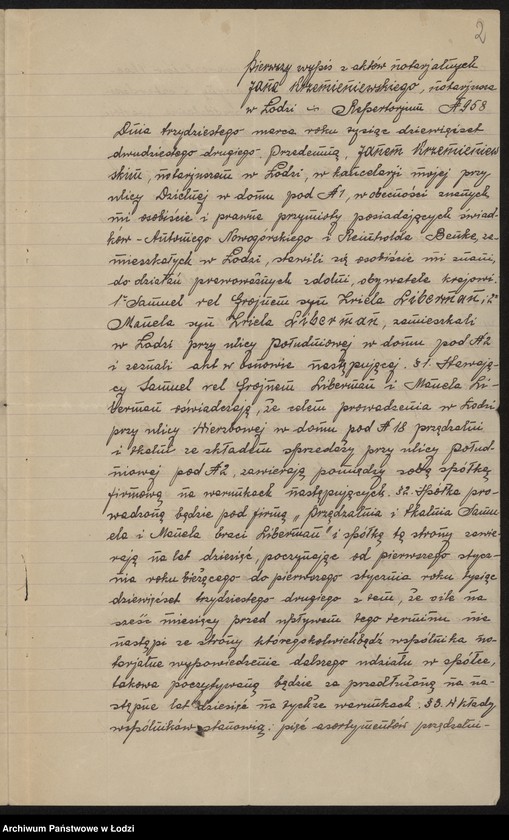 2
Pierwszy wypis z aktów notarjalnych
Jana Krzemieniewskiego, notarjusza
w Łodzi Repertorjum № 958
Dnia trzydziestego marca roku tysiąc dziewięćset
dwudziestego drugiego. Przedemną, Janem Krzemieniew
skim, notarjuszem w Łodzi, w kancelarji mojej przy
ulicy Dzielnej w domu pod № 1, w obecności znanych
mi osobiście i prawne przymioty posiadających świad-
ków - Antoniego Nowogórskiego i Reinholda Benke, za-
mieszkałych w Łodzi, stawili się osobiście mi znani,
do działań prawoważnych zdolni, obywatele krajowi:
1º Samuel vel Grojnem syn Zriela Liberman, i 2º
Manela syn Zriela Liberman, zamieszkali
w Łodzi przy ulicy Południowej w domu pod № 2
i zeznali akt w osnowie następującej. §1. Stawają-
cy Samuel vel Grojnem Liberman i Manela Li-
berman oświadczają, że celem prowadzenia w Łodzi
przy ulicy Wierzbowej w domu pod № 18 przędzalni
i tkalni ze składem sprzedaży przy ulicy Połud-
niowej pod № 2, zawierają pomiędzy sobą spółkę
firmową na warunkach następujących. §2. Spółka pro-
wadzoną będzie pod firmą „Przędzalnia i tkalnia Samu
ela i Manela braci Liberman" i spółkę tę strony zawie-
rają na lat dziesięć, poczynając od pierwszego stycz-
nia roku bieżącego do pierwszego stycznia roku tysiąc
dziewięćset trzydziestego drugiego z tem, że o ile na
sześć miesięcy przed upływem tego terminu nie
nastąpi ze strony któregokolwiekbądź wspólnika no-
tarjalne wypowiedzenie dalszego udziału w spółce,
takowa poczytywaną będzie za przedłużoną na na-
stępne lat dziesięć na tychże warunkach. §3. Wkłady
wspólników stanowią: pięć asortymentów przędzalni-
Archiwum Państwowe w Łodzi